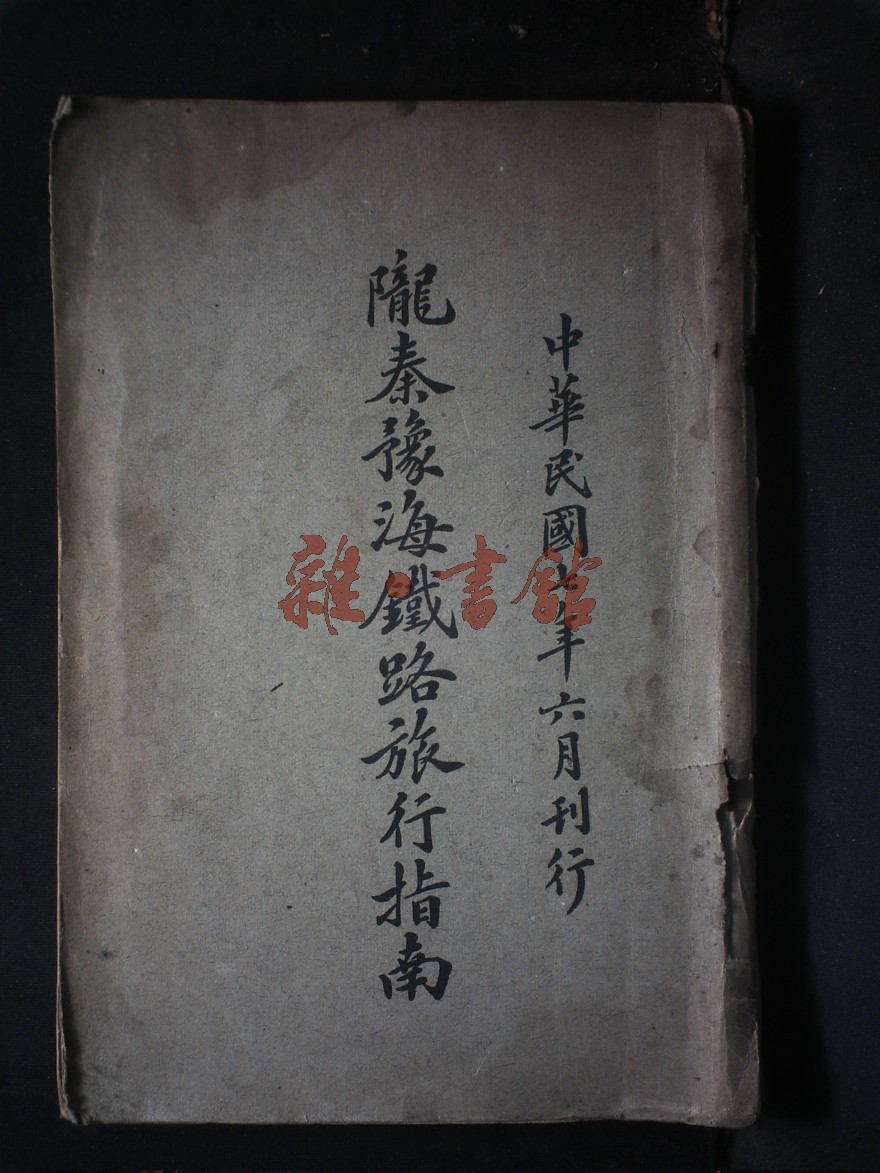 中華民國年六月刊行
隴秦豫海鐵路旅行指南
雜·書館